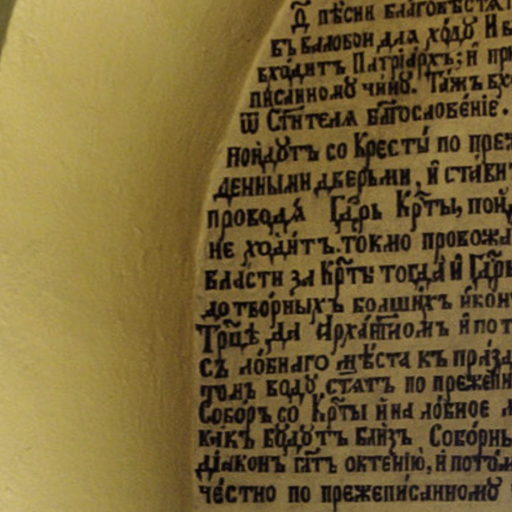 д҃ пѣсни благовѣстѧ
въ валовои длѧ хо́дꙋ И в
вхо́дитъ Патрїа́рхъ; и҆ при
пи́саномꙋ чи́нꙋ. Та́жъ вхо
Ѿ Ст҃и́телѧ бл҃гослове́нїе.
поидꙋтъ со Кресты́ по преж
денными дверьми, и҆ ста́вит
проводѧ́ Гдⷭ҇рь Кр҃ты, поид
не ходи́тъ. токмо провожа
вла́сти за Кр҃ты тогда́ и҆ Гдⷭ҇рь
до тво́рныхъ болши́хъ и҆кон
Трⷪ҇цѣ, да а҆рха́гг҃ломъ и҆ пот
съ ло́бнаго мѣ́ста къ пра́зд
томъ бꙋдꙋ ста́тъ по прежепи
Соборъ со Кр҃ты и҆ на ло́бное
какъ бꙋдꙋтъ бли́зъ Собо́рны
дїаконъ гл҃тъ октенїю̀, и҆ пото́м
че́стно по прежепи́санномꙋ